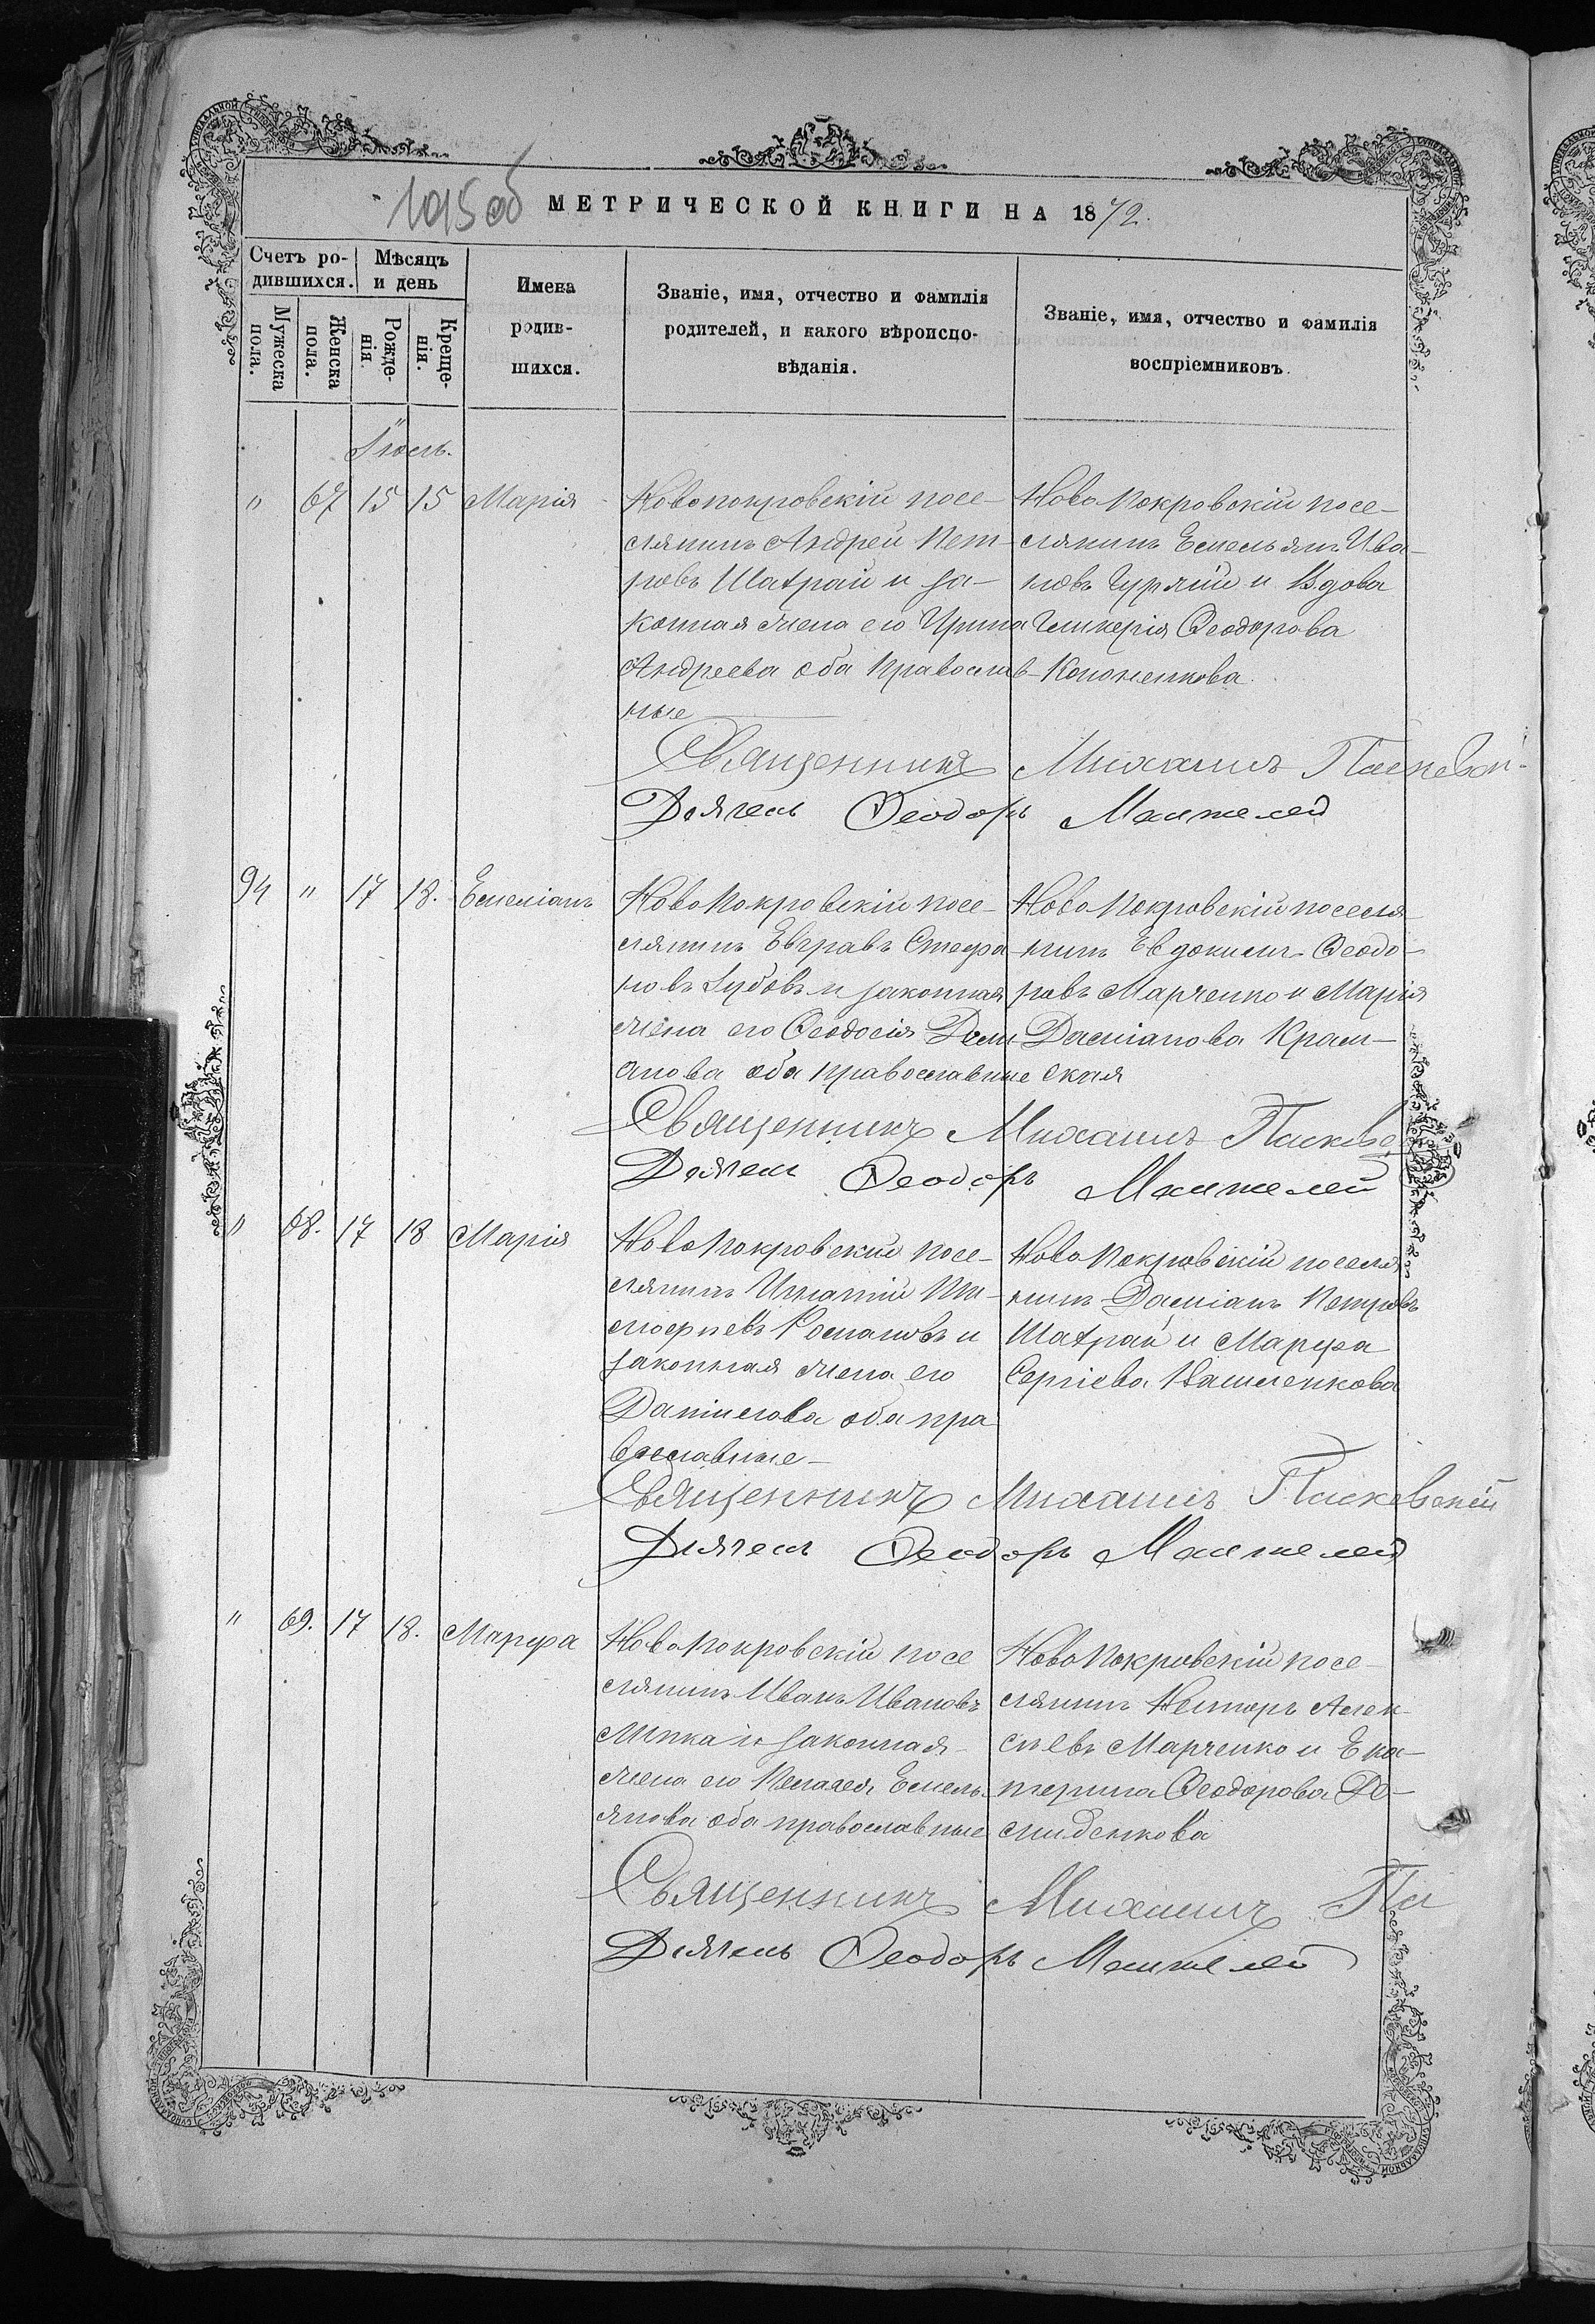 1015 об
МЕТРИЧЕСКОЙ КНИГИ НА 1872.
Счетъ ро-
дившихся.
Мѣсяцъ
и день
Мужеска
пола.
Женска
пола.
Рожде-
нія.
Креще-
нія.
Имена
родив-
шихся.
Званіе, имя, отчество и фамилія
родителей, и какого вѣроиспо-
вѣданія.
Званіе, имя, отчество и фамилія
воспріемниковъ.
Іюль.
" 67 15 15 Марія
Новопокровскій посе-
лянинъ Андрей Пет-
ровъ Шатрай и за-
конная жена его Ирина
Андреева оба православ-
ные
Новопокровскій посе-
лянинъ Емельянъ Ива-
новъ и Вдова
Гликерія Ѳеодорова
Кононенкова.
Священникъ Михаилъ
Дьячекъ Ѳеодоръ
94 " 17 18. Емеліанъ
Новопокровскій посе-
лянинъ Евгравъ Стефа-
новъ Зубовъ и законная
жена его Ѳеодосія Деми-
анова оба православные
Новопокровскій поселя-
нинъ Евдокимъ Ѳеодо-
ровъ Марченко и Марія
Даміанова Крам-
ская
Священникъ Михаилъ
Дьячекъ Ѳеодоръ
" 68. 17 18 Марія
Новопокровскій посе-
лянинъ Игнатій Ти-
моѳеевъ Романовъ и
законная жена его
Даніилова оба пра-
вославные-
Новопокровскій поселя-
нинъ Даміанъ Петровъ
Шатрай и Марѳа
Сергіева
Священникъ Михаилъ
Дьячекъ Ѳеодоръ
" 69. 17 18. Марѳа
Новопокровскій посе
лянинъ Иванъ Ивановъ
и законная
жена его Пелагея Емель-
янова оба православные
Новопокровскій посе-
лянинъ Несторъ Алек-
сѣевъ Марченко и Ека-
терина Ѳеодорова Де-
миденкова
Священникъ Михаилъ
Дьячекъ Ѳеодоръ